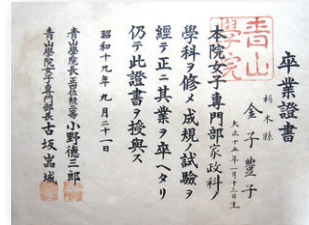 卒業證書
青山
學院
栃木縣
金子豊子
大正十五年一月十三日生
本院女子專門部家政科ノ
學科ヲ修メ成規ノ試驗ヲ
經テ正ニ其業ヲ卒ヘタリ
仍テ此證書ヲ授與ス
昭和十九年九月二十一日
青山學院長正四位勲三等小野德三郎
青山學院女子專門部長古坂嵓城